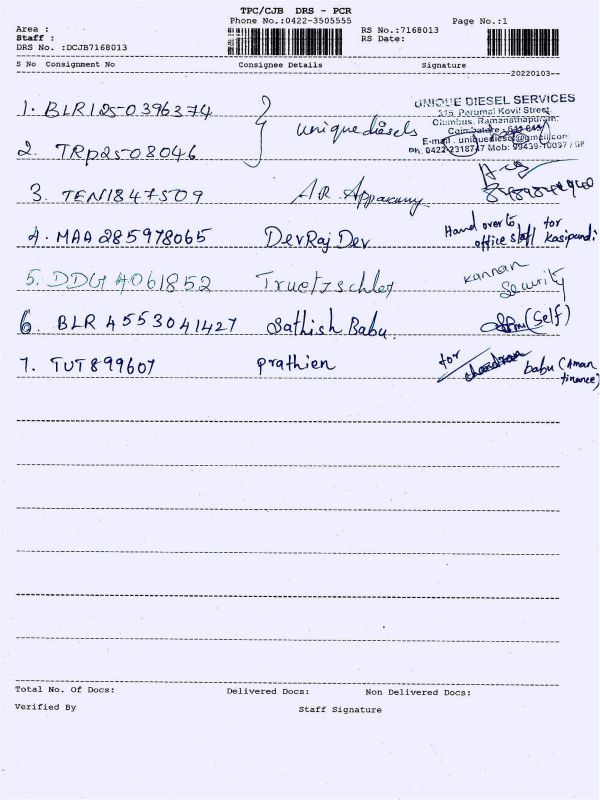 TPC/CJB DRS - PCR
Phone No.:0422-3505555 Page No.:1
Area :
Staff :
DRS No. :DCJB7168013
RS No.:7168013
RS Date:
S No Consignment No Consignee Details Signature
20220103
1. BLR1250396374
2. TRP2508046
unique diesels
UNIQUE DIESEL SERVICES
315, Perumal Kovil Street
Olumbus, Ramanathapuram,
Coimbatore
E-mail : uniquediesel@gmail.com
Ph: 0422-2318747 Mob: 99439-10097 / SP
3. TEN1847509 A.R.
4. MAA 285978065 DevRaj Dev Hand over to office staff for
5. DDG 4061852 Truetzschler Kannan Security
6. BLR 4553041427 Sathish Babu (Self)
7. TUT899607 prathien for babu (Aman finance)
Total No. Of Docs: Delivered Docs: Non Delivered Docs:
Verified By Staff Signature